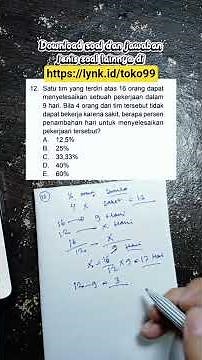 Download soal dan jawaban
jenis soal lainnya di
https://lynk.id/toko99
12. Satu tim yang terdiri atas 16 orang dapat
menyelesaikan sebuah pekerjaan dalam
9 hari. Bila 4 orang dari tim tersebut tidak
dapat bekerja karena sakit, berapa persen
penambahan hari untuk menyelesaikan
pekerjaan tersebut?
A. 12,5%
B. 25%
C. 33,33%
D. 40%
E. 60%
16 orang
4 sakit = 12
16 9 Hari
12 x Hari
16 x
12 9 Hari
x = 16/12 x 9 = 12 Hari
12 - 9 = 3